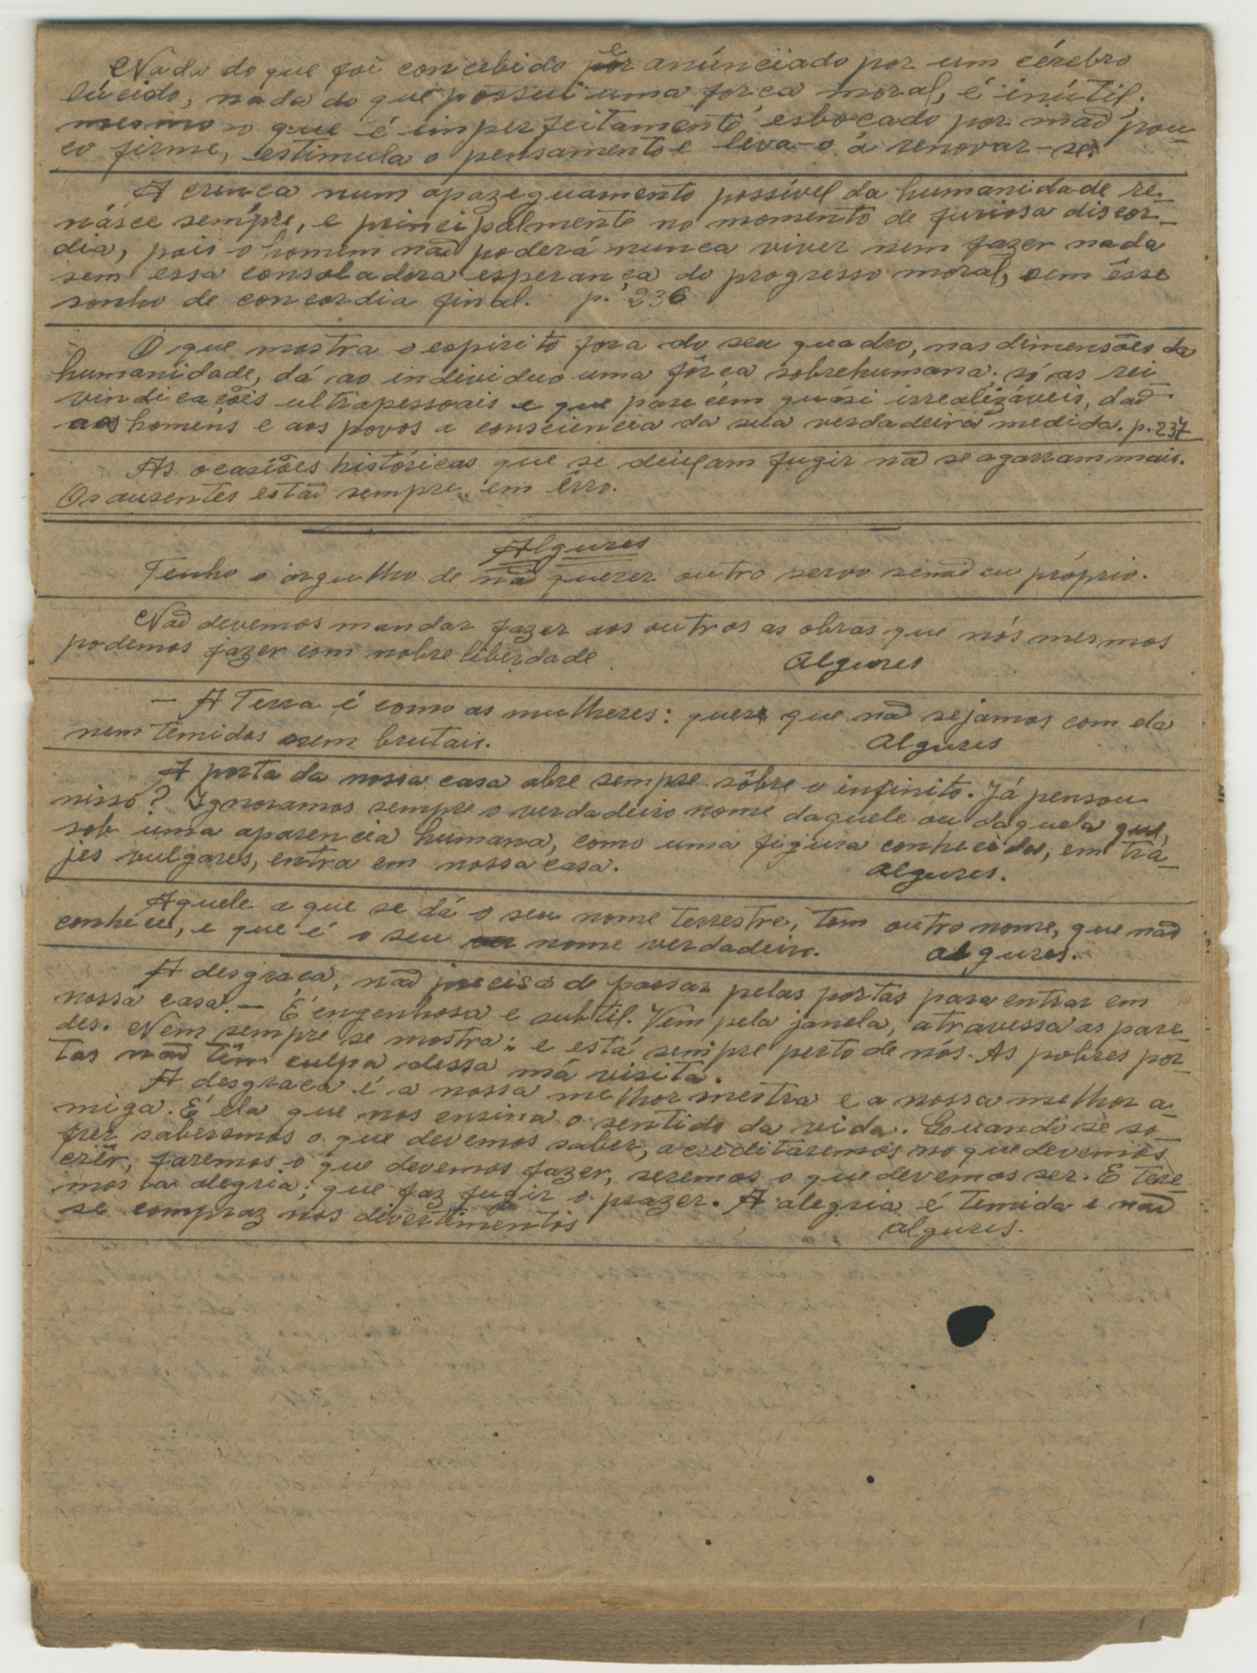 Nada do que foi concebido e anúnciado por um cérebro
lúcido, nada do que possui uma fôrça moral, é inútil;
mesmo o que é imperfeitamente esboçado por mão pou-
co firme, estimula o pensamento e leva-o á renovar-se.
A crença num apazeguamento possível da humanidade re-
násce sempre, e principalmente no momento de furiosa discór-
dia, pois o homem não poderá nunca viver nem fazer nada
sem essa consoladora esperança do progresso moral, sem êsse
sonho de concordia final. p. 236
O que mostra o espirito fora do seu quadro, nas dimensões da
humanidade, dá ao individuo uma fôrça sobrehumana. só as rei-
vindicações ultrapessoais e que parecem quási irrealizaveis, dão
aos homens e aos povos a consciencia da sua verdadeira medida. p. 237
As ocasiões históricas que se deixam fugir não se agarram mais.
Os ausentes estão sempre em êrro.
Algures
Tenho o orgulho de não querer outro servo senão eu próprio.
Não devemos mandar fazer aos outros as obras que nós mesmos
podemos fazer com nobre liberdade. Algures
— A Terra é como as mulheres: quere que não sejamos com ela
nem temidos nem brutais. Algures
A porta da nossa casa abre sempre sôbre o infinito. Já pensou
nisso? Ignoramos sempre o verdadeiro nome daquele ou daquela que,
sob uma aparencia humana, como uma figura conhecida, em tra-
jes vulgares, entra em nossa casa. Algures.
Aquele a que se dá o seu nome terrestre, tem outro nome, que não
conheceis, e que é o seu nome verdadeiro. algures.
A desgraça, não precisa de passar pelas portas para entrar em
nossa casa. — É engenhosa e subtil. Vem pela janela, atravessa as pare-
des. Nem sempre se mostra: e está sempre perto de nós. As pobres por-
tas não têm culpa dessa má visita.
A desgraça é a nossa melhor mestra e a nossa melhor a-
miga. É ela que nos ensina o sentido da vida. Quando se so-
frer saberemos o que devemos saber, acreditaremos no que devemos
crêr, faremos o que devemos fazer, seremos o que devemos ser. E tere-
mos a alegria; que faz fugir o prazer. A alegria é temida e não
se compraz nos divertimentos algures.